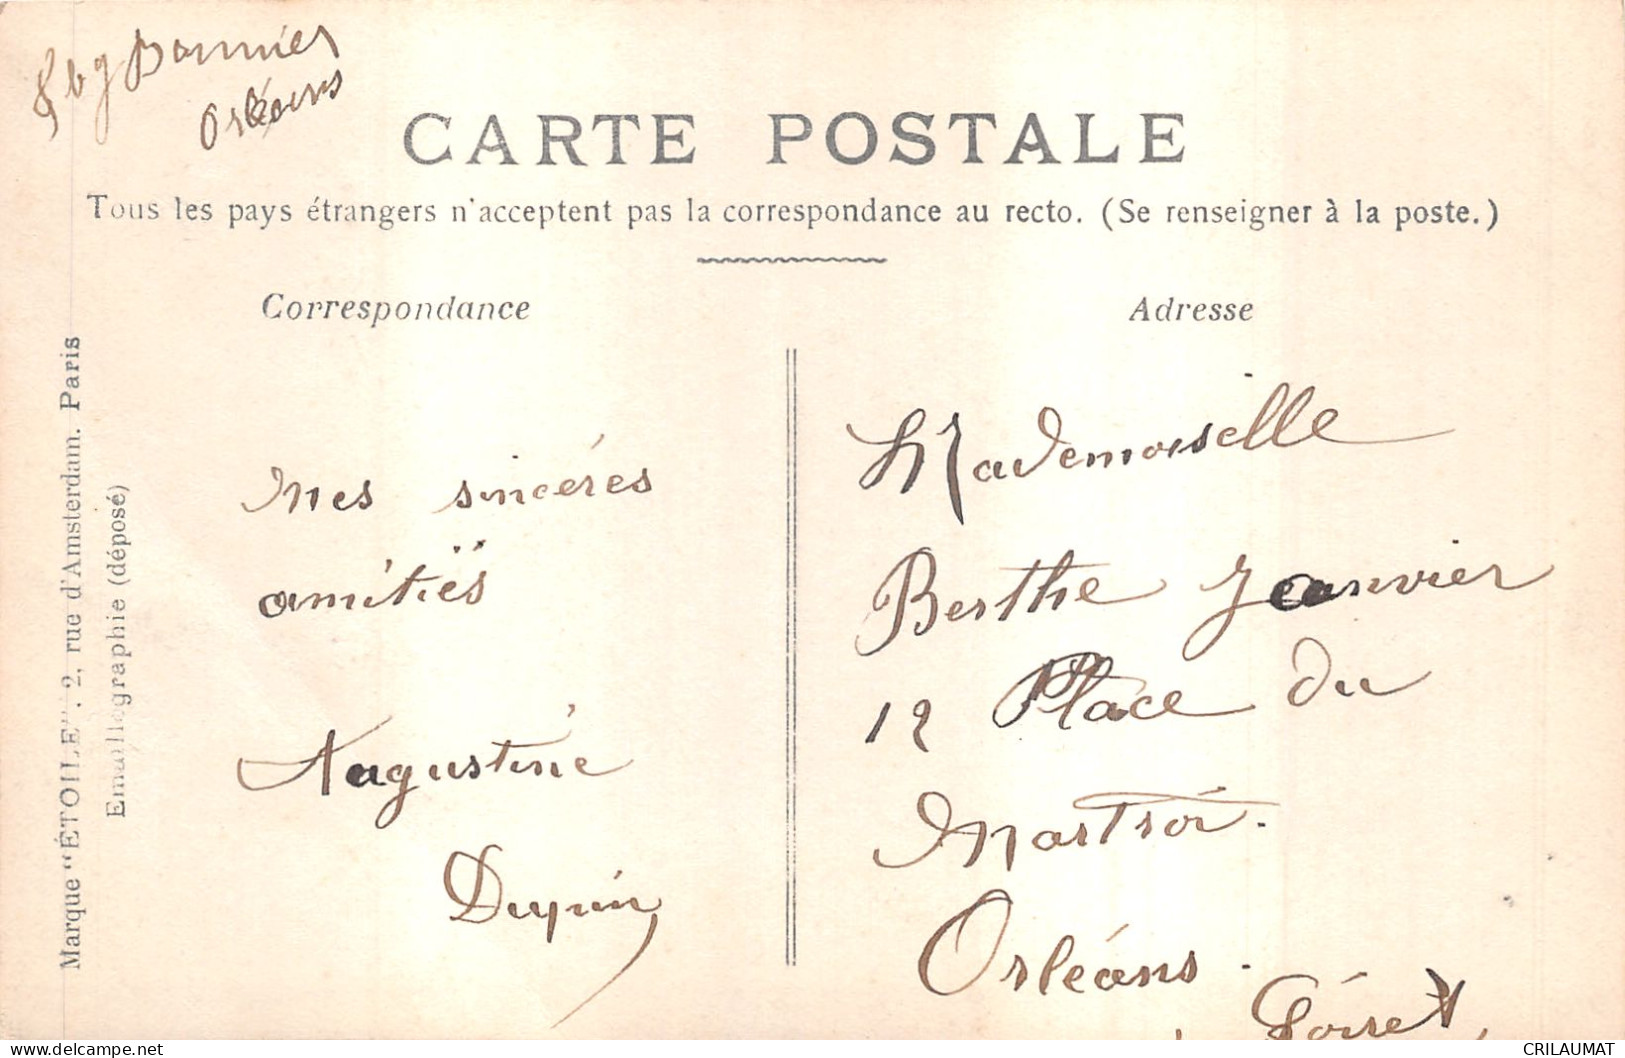 Fbg Bannier
Orléans
CARTE POSTALE
Tous les pays étrangers n'acceptent pas la correspondance au recto. (Se renseigner à la poste.)
Correspondance
Adresse
Marque "ÉTOILE". 2, rue d'Amsterdam. Paris
Emaillographie (déposé)
Mes sincéres
amitiés
Augustine
Dupuis
Mademoiselle
Berthe Janvier
12 Place du
Martroi.
Orléans.
Loiret
CRILAUMAT